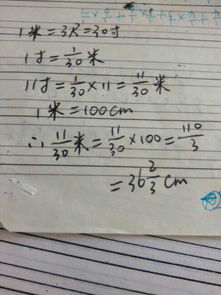 1米=3尺=30寸
1寸=1/30米
11寸=1/30×11=11/30米
1米=100cm
∴11/30米=11/30×100=110/3
=36 2/3cm